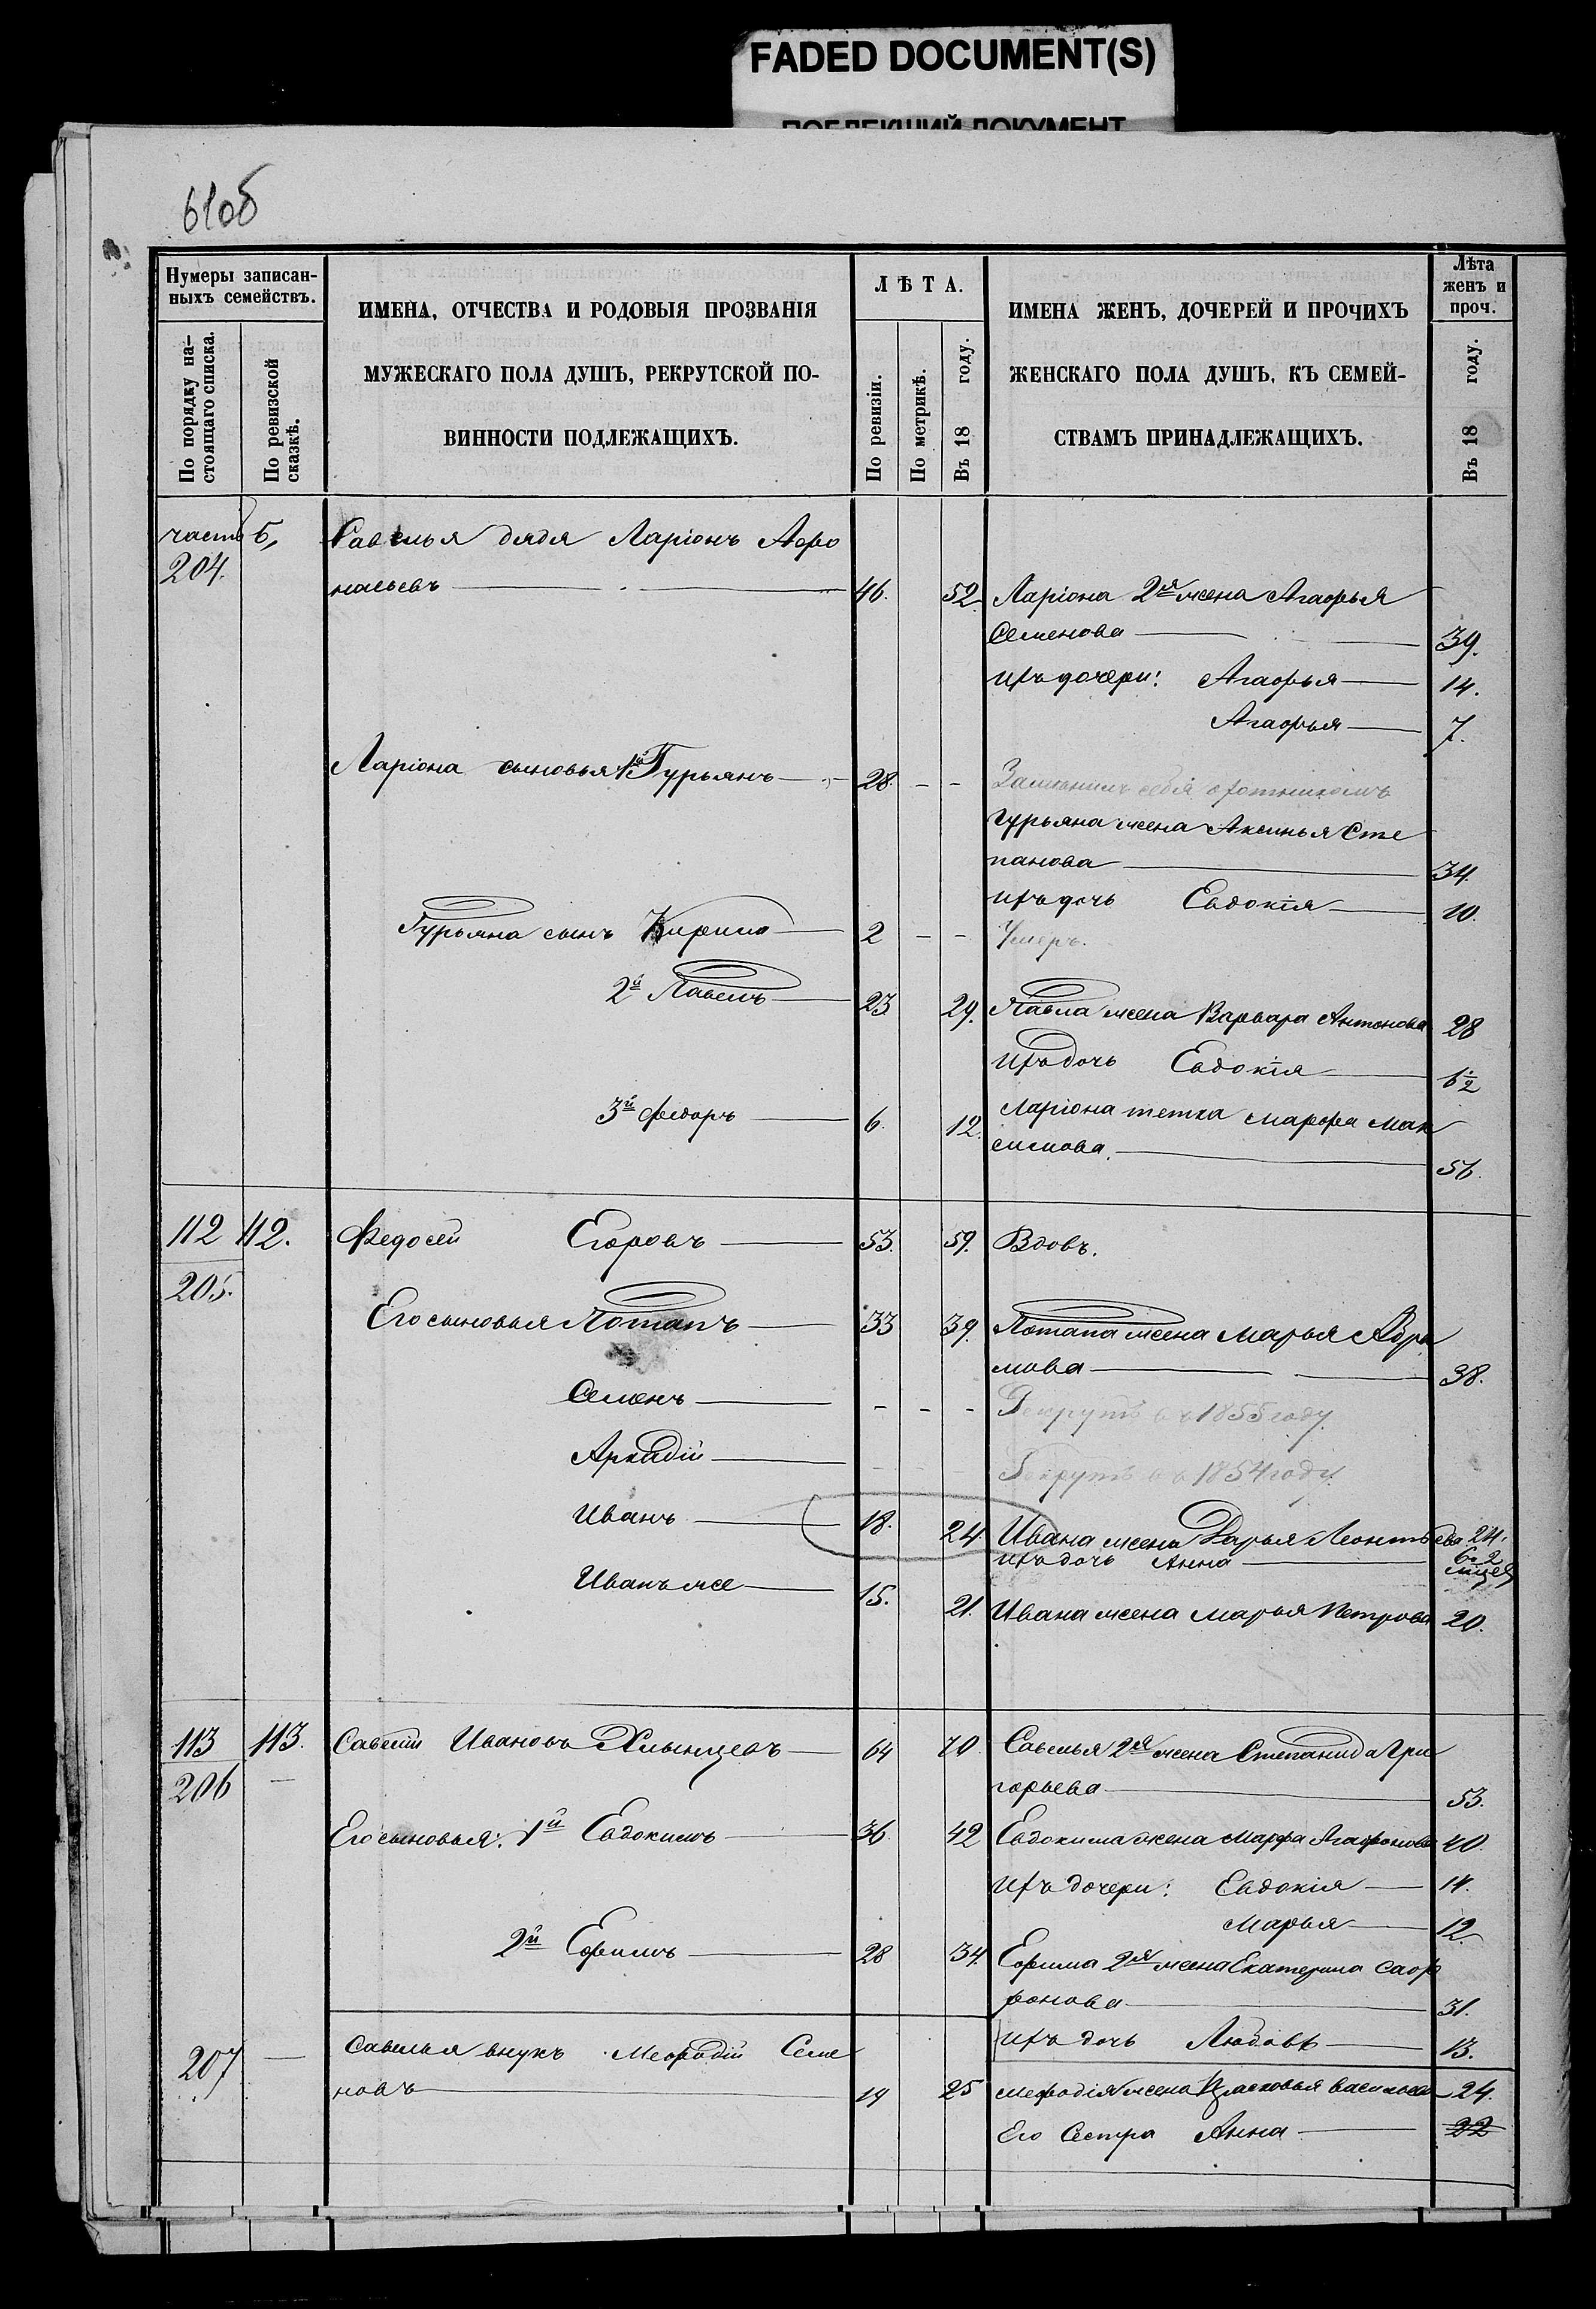 FADED DOCUMENT(S)
ПОБЛЕКШИЙ ДОКУМЕНТ
61об
Нумеры записан-
ныхъ семействъ.
По порядку на-
стоящаго списка.
По ревизской
сказкѣ.
ИМЕНА, ОТЧЕСТВА И РОДОВЫЯ ПРОЗВАНІЯ
МУЖЕСКАГО ПОЛА ДУШЪ, РЕКРУТСКОЙ ПО-
ВИННОСТИ ПОДЛЕЖАЩИХЪ.
ЛѢТА.
По ревизіи.
По метрикѣ.
Въ 18 году.
ИМЕНА ЖЕНЪ, ДОЧЕРЕЙ И ПРОЧИХЪ
ЖЕНСКАГО ПОЛА ДУШЪ, КЪ СЕМЕЙ-
СТВАМЪ ПРИНАДЛЕЖАЩИХЪ.
Лѣта
женъ и
проч.
Въ 18 году.
часть Б,
204.
Савелья дядя Ларіонъ Афо
насьевъ 46. 52. Ларіона 2я жена Агафья
Семенова 39.
ихъ дочери: Агафья 14.
Агафья 7.
Ларіона сыновья 1й Гурьянъ 28. - - Заменилъ себя охотникомъ
Гурьяна жена Аксинья Сте
панова 34.
ихъ дочь Евдокія 10.
Гурьяна сынъ Кирило 2 - - Умеръ.
2й Павелъ 23 29. Павла жена Варвара Антонова 28
ихъ дочь Евдокія
3й Федоръ 6. 12. Ларіона тетка Марфа Мак
симова. 56.
112 112. Федосей Егоровъ 53. 59. Вдовъ.
205.
Его сыновья Потапъ 33 39. Потапа жена Марья Абра
мова 38.
Семенъ - - - Рекрутъ въ 1855 году.
Аркадій - - - Рекрутъ въ 1854 году.
Иванъ 18. 24 Ивана жена Дарья Леонтьева 24.
ихъ дочь Анна
Иванъ же 15. 21. Ивана жена Марья Петрова 20.
113 113. Савелій Ивановъ Хлынцевъ 64 70. Савелья 2я жена Степанида Гри
206
горьева 53.
Его сыновья: 1й Евдокимъ 36 42 Евдокима жена Марфа Агафонова 40.
ихъ дочери: Евдокія 14.
Марья 12.
2й Ефимъ 28 34. Ефима 2я жена Екатерина Саф
ронова 31.
ихъ дочь Любовь 13.
207
Савелья внукъ Мефодій Семе
новъ 19 25 Мефодія жена Прасковья Васильева 24.
Его Сестра Анна 22